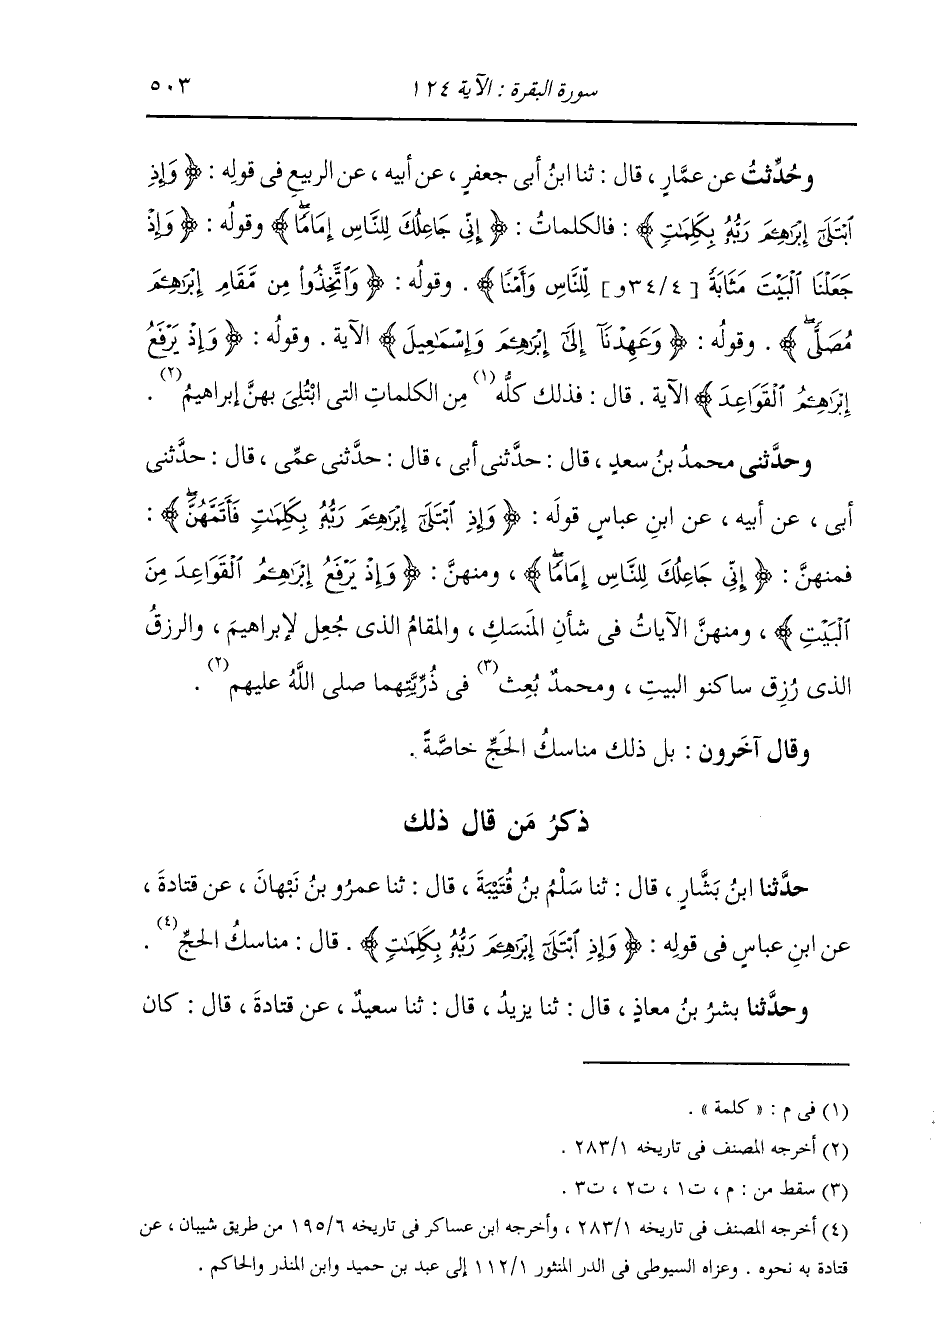 سورة البقرة : الآية ١٢٤
٥٠٣
وحُدِّثتُ عن عمَّارٍ ، قال : ثنا ابنُ أبى جعفرٍ ، عن أبيه ، عن الربيعِ فى قولِه : ﴿ وَإِذِ
ٱبْتَلَىٰٓ إِبْرَٰهِـۧمَ رَبُّهُۥ بِكَلِمَٰتٍ ﴾ : فالكلماتُ : ﴿ إِنِّى جَاعِلُكَ لِلنَّاسِ إِمَامًاۖ ﴾ وقولُه : ﴿ وَإِذْ
جَعَلْنَا ٱلْبَيْتَ مَثَابَةً [٣٤/٤و] لِّلنَّاسِ وَأَمْنًا ﴾ . وقولُه : ﴿ وَٱتَّخِذُوا۟ مِن مَّقَامِ إِبْرَٰهِـۧمَ
مُصَلًّىۖ ﴾ . وقولُه : ﴿ وَعَهِدْنَآ إِلَىٰٓ إِبْرَٰهِـۧمَ وَإِسْمَٰعِيلَ ﴾ الآية . وقولُه : ﴿ وَإِذْ يَرْفَعُ
إِبْرَٰهِـۧمُ ٱلْقَوَاعِدَ ﴾ الآية . قال : فذلك كلُّه(١) مِن الكلماتِ التى ابْتُلِىَ بهنَّ إبراهيمُ(٢) .
وحدَّثنى محمدُ بنُ سعدٍ ، قال : حدَّثنى أبى ، قال : حدَّثنى عمِّى ، قال : حدَّثنى
أبى ، عن أبيه ، عن ابنِ عباسٍ قولَه : ﴿ وَإِذِ ٱبْتَلَىٰٓ إِبْرَٰهِـۧمَ رَبُّهُۥ بِكَلِمَٰتٍ فَأَتَمَّهُنَّۖ ﴾ :
فمنهنَّ : ﴿ إِنِّى جَاعِلُكَ لِلنَّاسِ إِمَامًاۖ ﴾ ، ومنهنَّ : ﴿ وَإِذْ يَرْفَعُ إِبْرَٰهِـۧمُ ٱلْقَوَاعِدَ مِنَ
ٱلْبَيْتِ ﴾ ، ومنهنَّ الآياتُ فى شأنِ المَنسَكِ ، والمقامُ الذى جُعِل لإبراهيمَ ، والرزقُ
الذى رُزِق ساكنو البيتِ ، ومحمدٌ بُعِث(٣) فى ذُرِّيَّتِهما صلى اللَّهُ عليهم(٢) .
وقال آخَرون : بل ذلك مناسكُ الحَجِّ خاصَّةً .
ذكرُ مَن قال ذلك
حدَّثنا ابنُ بَشَّارٍ ، قال : ثنا سَلْمُ بنُ قُتَيْبَةَ ، قال : ثنا عمرُو بنُ نَبْهانَ ، عن قتادةَ ،
عن ابنِ عباسٍ فى قولِه : ﴿ وَإِذِ ٱبْتَلَىٰٓ إِبْرَٰهِـۧمَ رَبُّهُۥ بِكَلِمَٰتٍ ﴾ . قال : مناسكُ الحجِّ(٤) .
وحدَّثنا بشرُ بنُ معاذٍ ، قال : ثنا يزيدُ ، قال : ثنا سعيدٌ ، عن قتادةَ ، قال : كان
(١) فى م : « كلمة » .
(٢) أخرجه المصنف فى تاريخه ٢٨٣/١ .
(٣) سقط من : م ، ت١ ، ت٢ ، ت٣ .
(٤) أخرجه المصنف فى تاريخه ٢٨٣/١ ، وأخرجه ابن عساكر فى تاريخه ١٩٥/٦ من طريق شيبان ، عن
قتادة به نحوه . وعزاه السيوطى فى الدر المنثور ١١٢/١ إلى عبد بن حميد وابن المنذر والحاكم .